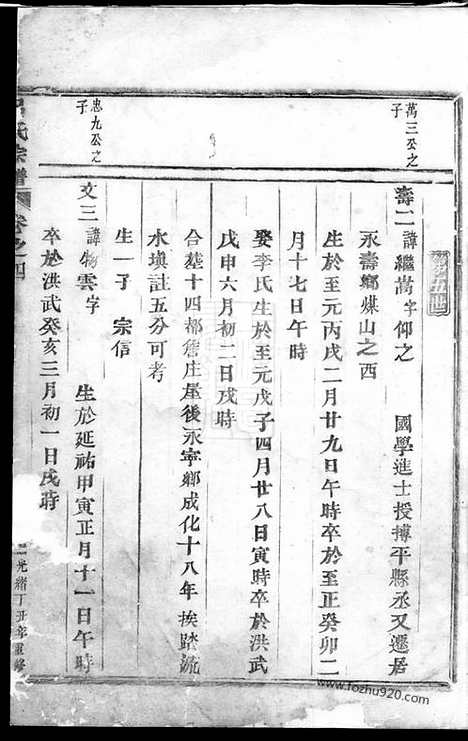 第五世
萬三公之子
壽二 諱繼嵩字仰之 國學進士授搏平縣丞又遷居
永壽鄉煤山之西
生於至元丙戌二月廿九日午時卒於至正癸卯二
月十七日午時
娶李氏生於至元戊子四月廿八日寅時卒於洪武
戊申六月初二日戌時
合塟十四都詹庄屋後永寧鄉成化十八年挨踏流
水塡註五分可考
生一子 宗信
忠九公之子
文三 諱 雲字 生於延祐甲寅正月十一日午時
卒於洪武癸亥三月初一日戌時
呂氏宗譜 卷之四
光緒丁丑年重修
www.fozhu920.com